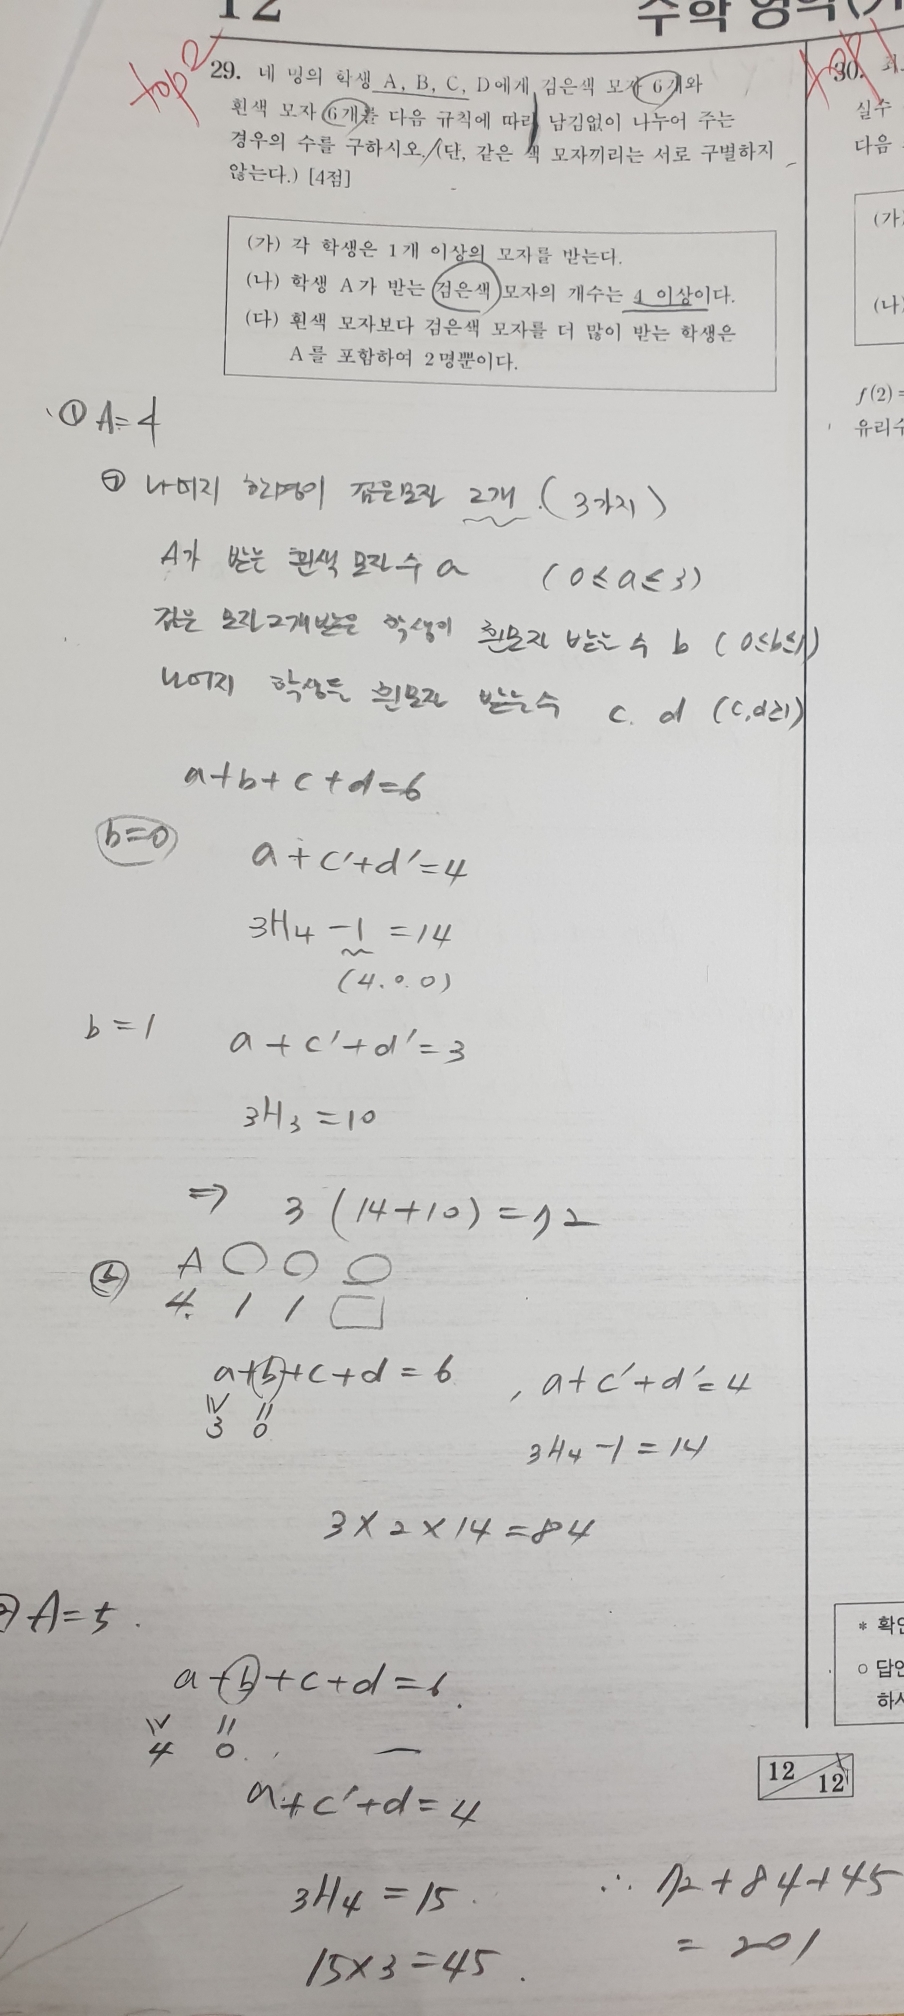 12
수학 영역
top 2
29. 네 명의 학생 A, B, C, D에게 검은색 모자 6개와
흰색 모자 6개를 다음 규칙에 따라 남김없이 나누어 주는
경우의 수를 구하시오. (단, 같은 색 모자끼리는 서로 구별하지
않는다.) [4점]
(가) 각 학생은 1개 이상의 모자를 받는다.
(나) 학생 A가 받는 검은색 모자의 개수는 4 이상이다.
(다) 흰색 모자보다 검은색 모자를 더 많이 받는 학생은
A를 포함하여 2명뿐이다.
top 1
30.
실수
다음
(가)
(나)
f(2)=
유리수
① A=4
㉠ 나머지 한명이 검은모자 2개. (3가지)
A가 받는 흰색 모자 수 a (0≤a≤3)
검은 모자 2개 받은 학생이 흰모자 받는 수 b (0≤b≤1)
나머지 학생들 흰모자 받는 수 c. d (c,d≥1)
a+b+c+d=6
b=0 a+c'+d'=4
3H4 -1 =14
(4.0.0)
b=1 a+c'+d'=3
3H3 =10
⇒ 3(14+10)=72
㉡ A ○ ○ ○
4. 1 1 □
a+b+c+d=6 , a+c'+d'=4
3 0
3H4-1=14
3×2×14=84
② A=5.
a+b+c+d=6.
4 0.
a+c'+d=4
3H4=15.
15×3=45.
∴ 72+84+45
=201
* 확인
○ 답안
하시
12
12